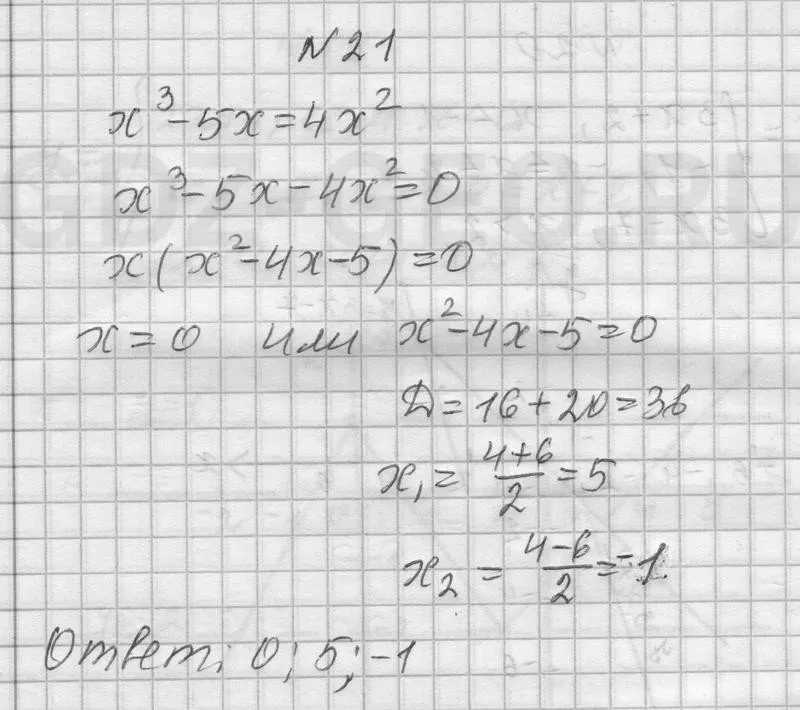 №21
x³-5x=4x²
x³-5x-4x²=0
x(x²-4x-5)=0
x=0 или x²-4x-5=0
Д=16+20=36
x₁=(4+6)/2=5
x₂=(4-6)/2=-1
Ответ: 0; 5; -1